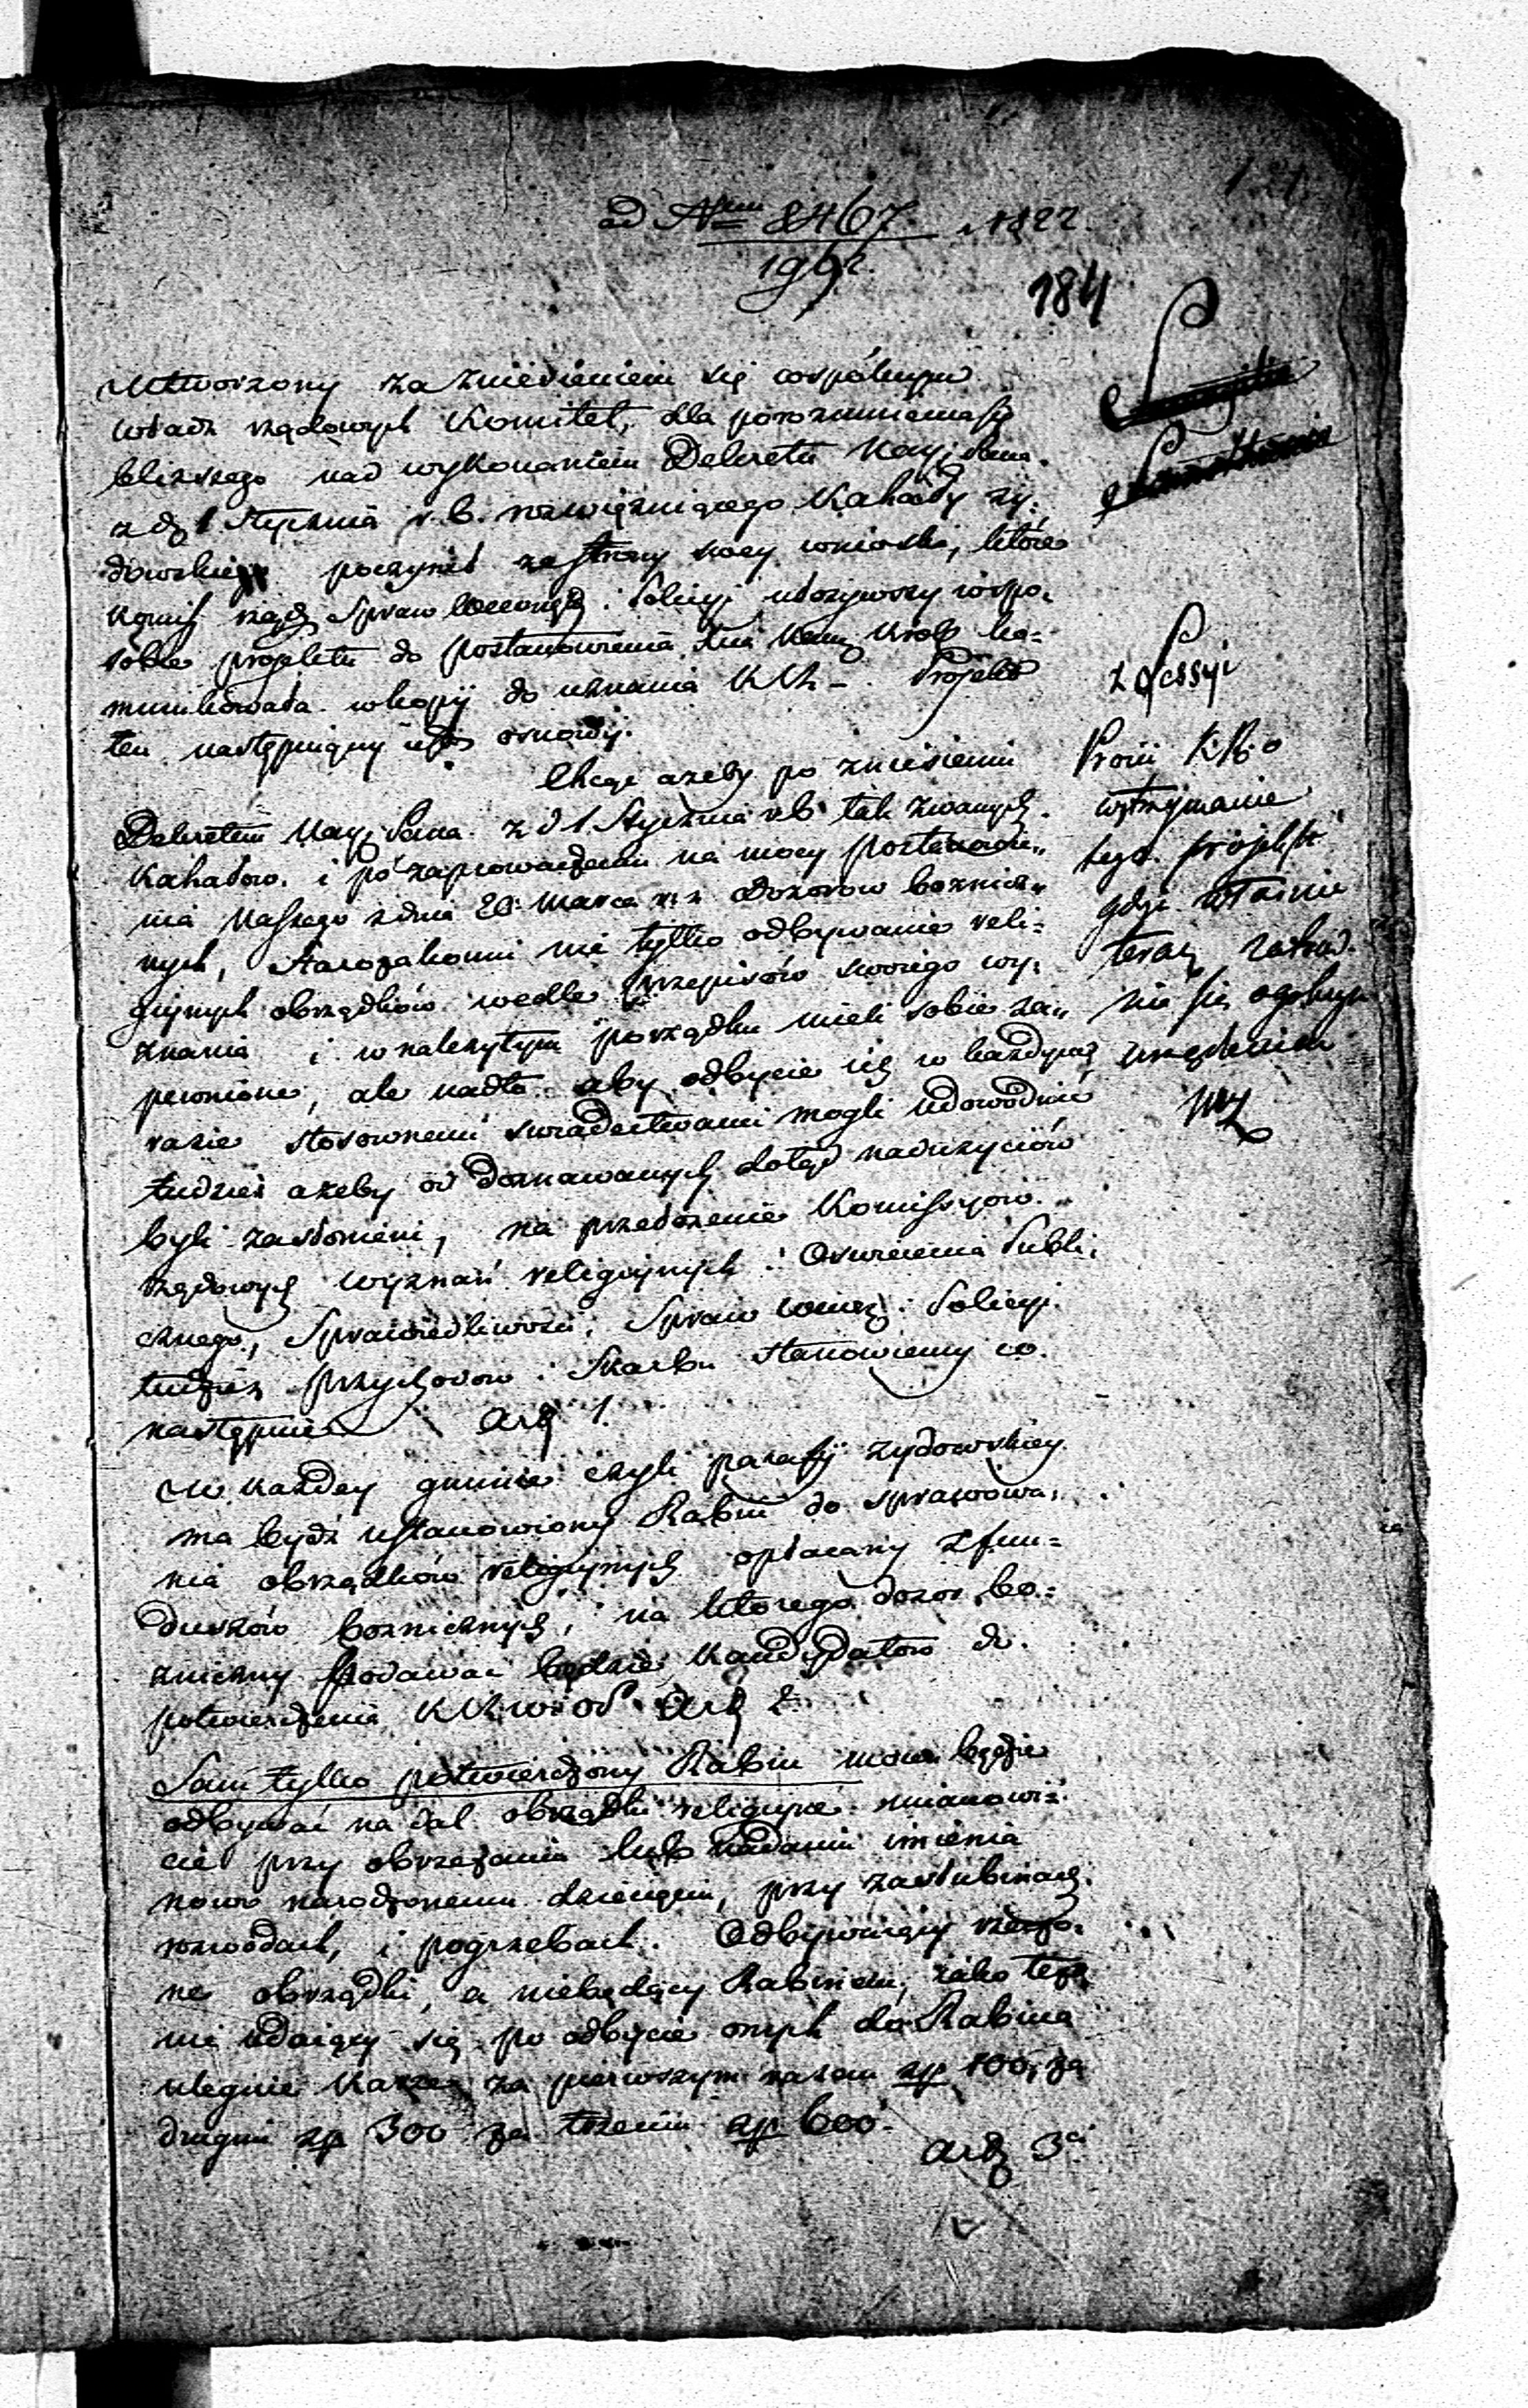 ad Num 8467. 1822.
184
Utworzony za zniesieniem się wspólnym
władz rządowych Komitet, dla porozumienia się
bliższego nad wykonaniem Dekretu Nayj. Pana
z d. 1 Stycznia r. b. rozwięzuiącego Kahały ży-
dowskie poczynił ze strony swey wnioski, które
Komis. rządz. Spraw Wewnętz. i Policyi ułożywszy w spo-
sobie projektu do postanowienia Xia Namz. Król. ko-
munikowała w kopij do uznania KRz. Projekt
ten następuiący iest osnowy.
Chcąc ażeby po zniesieniu
Dekretem Nayj. Pana z d 1 Stycznia r b tak zwanych
Kahałów i po zaprowadzeniu na mocy postanowie-
nia Naszego z dnia 20 Marca r. z. dozorów boznicz-
nych, Starozakonni nie tylko odbywanie reli-
giynych obrządków wedle przepisów swoiego wy-
znania i w należytym porządku mieli sobie za-
pewnione, ale nadto aby odbycie ich w każdym
razie stosownemi świadectwami mogli udowodnić
tudzież ażeby od doznawanych dotąd nadużyciów
byli zasłonieni, na przełożenie Kommissyów
rządowych Wyznań religiynych i Oświecenia Publi-
cznego, Sprawiedliwości, Spraw Wewnę. i Policyi
tudzież Przychodów i Skarbu stanowiemy co
następuie Art 1.
W każdey gminie czyli parafij żydowskiey
ma bydź ustanowiony Rabin do sprawowa-
nia obrządków religiynych opłacany z fun-
duszów boznicznych, na którego dozór bo-
zniczny podawać będzie kandydatów do
potwierdzenia KRz Art 2
Sam tylko potwierdzony Rabin mocen będzie
odbywać na dal obrządki religiyne mianowi-
cie przy obrzezaniu lub nadaniu imienia
nowo narodzonemu dziecięciu, przy zaślubinach
rozwodach, i pogrzebach. Odbywaiący rzeczo-
ne obrządki, a niebędący Rabinem, iako też
nie udaiący się po odbycie onych do Rabina
ulegnie karze za pierwszym razem zp 100, za
drugim zp 300 za trzecim zp 600.
Art 3ci
z Sessyi
wstrzymanie
tego projektu
gdy właśnie
teraz
się ogólnym
urządzeniem